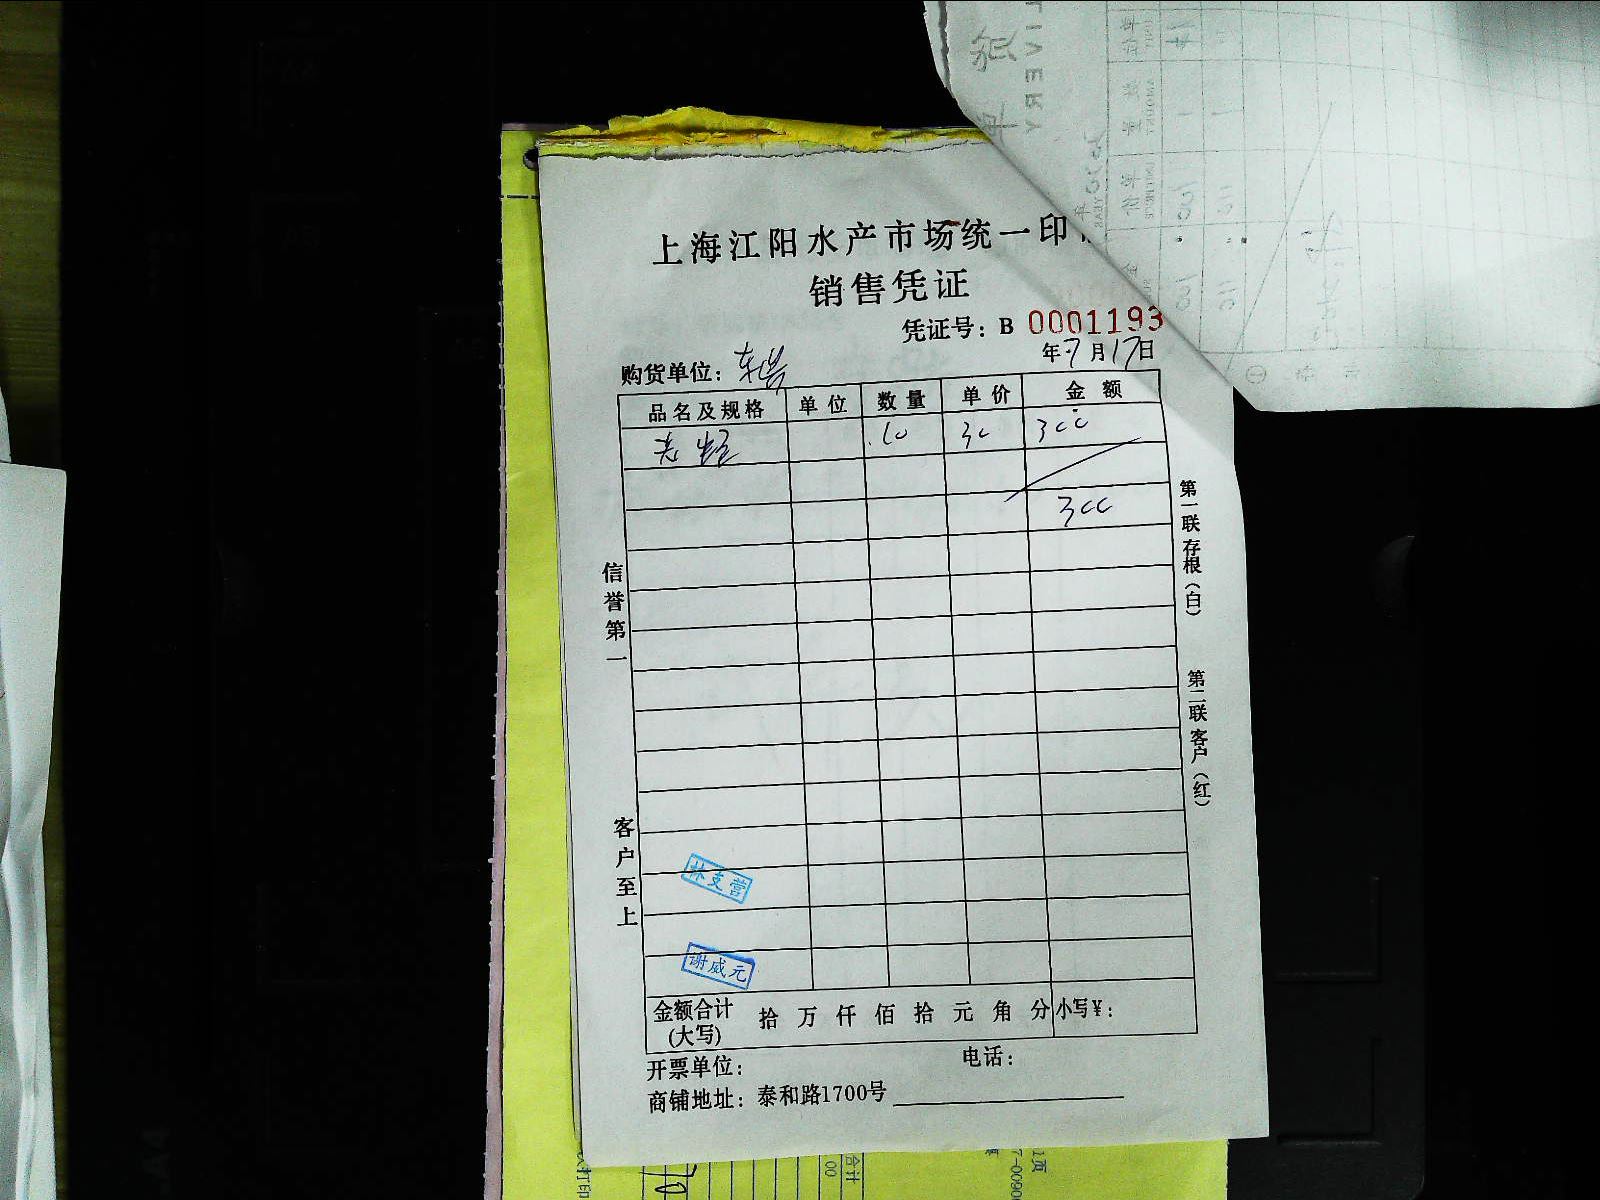 上海江阳水产市场统一印
销售凭证
凭证号：B 0001193
年7月17日
购货单位：
品名及规格 单位 数量 单价 金额
10 30 300
300
信誉第一
客户至上
第一联存根（白）
第二联客户（红）
林支营
谢威元
金额合计(大写) 拾 万 仟 佰 拾 元 角 分 小写¥：
开票单位： 电话：
商铺地址：泰和路1700号